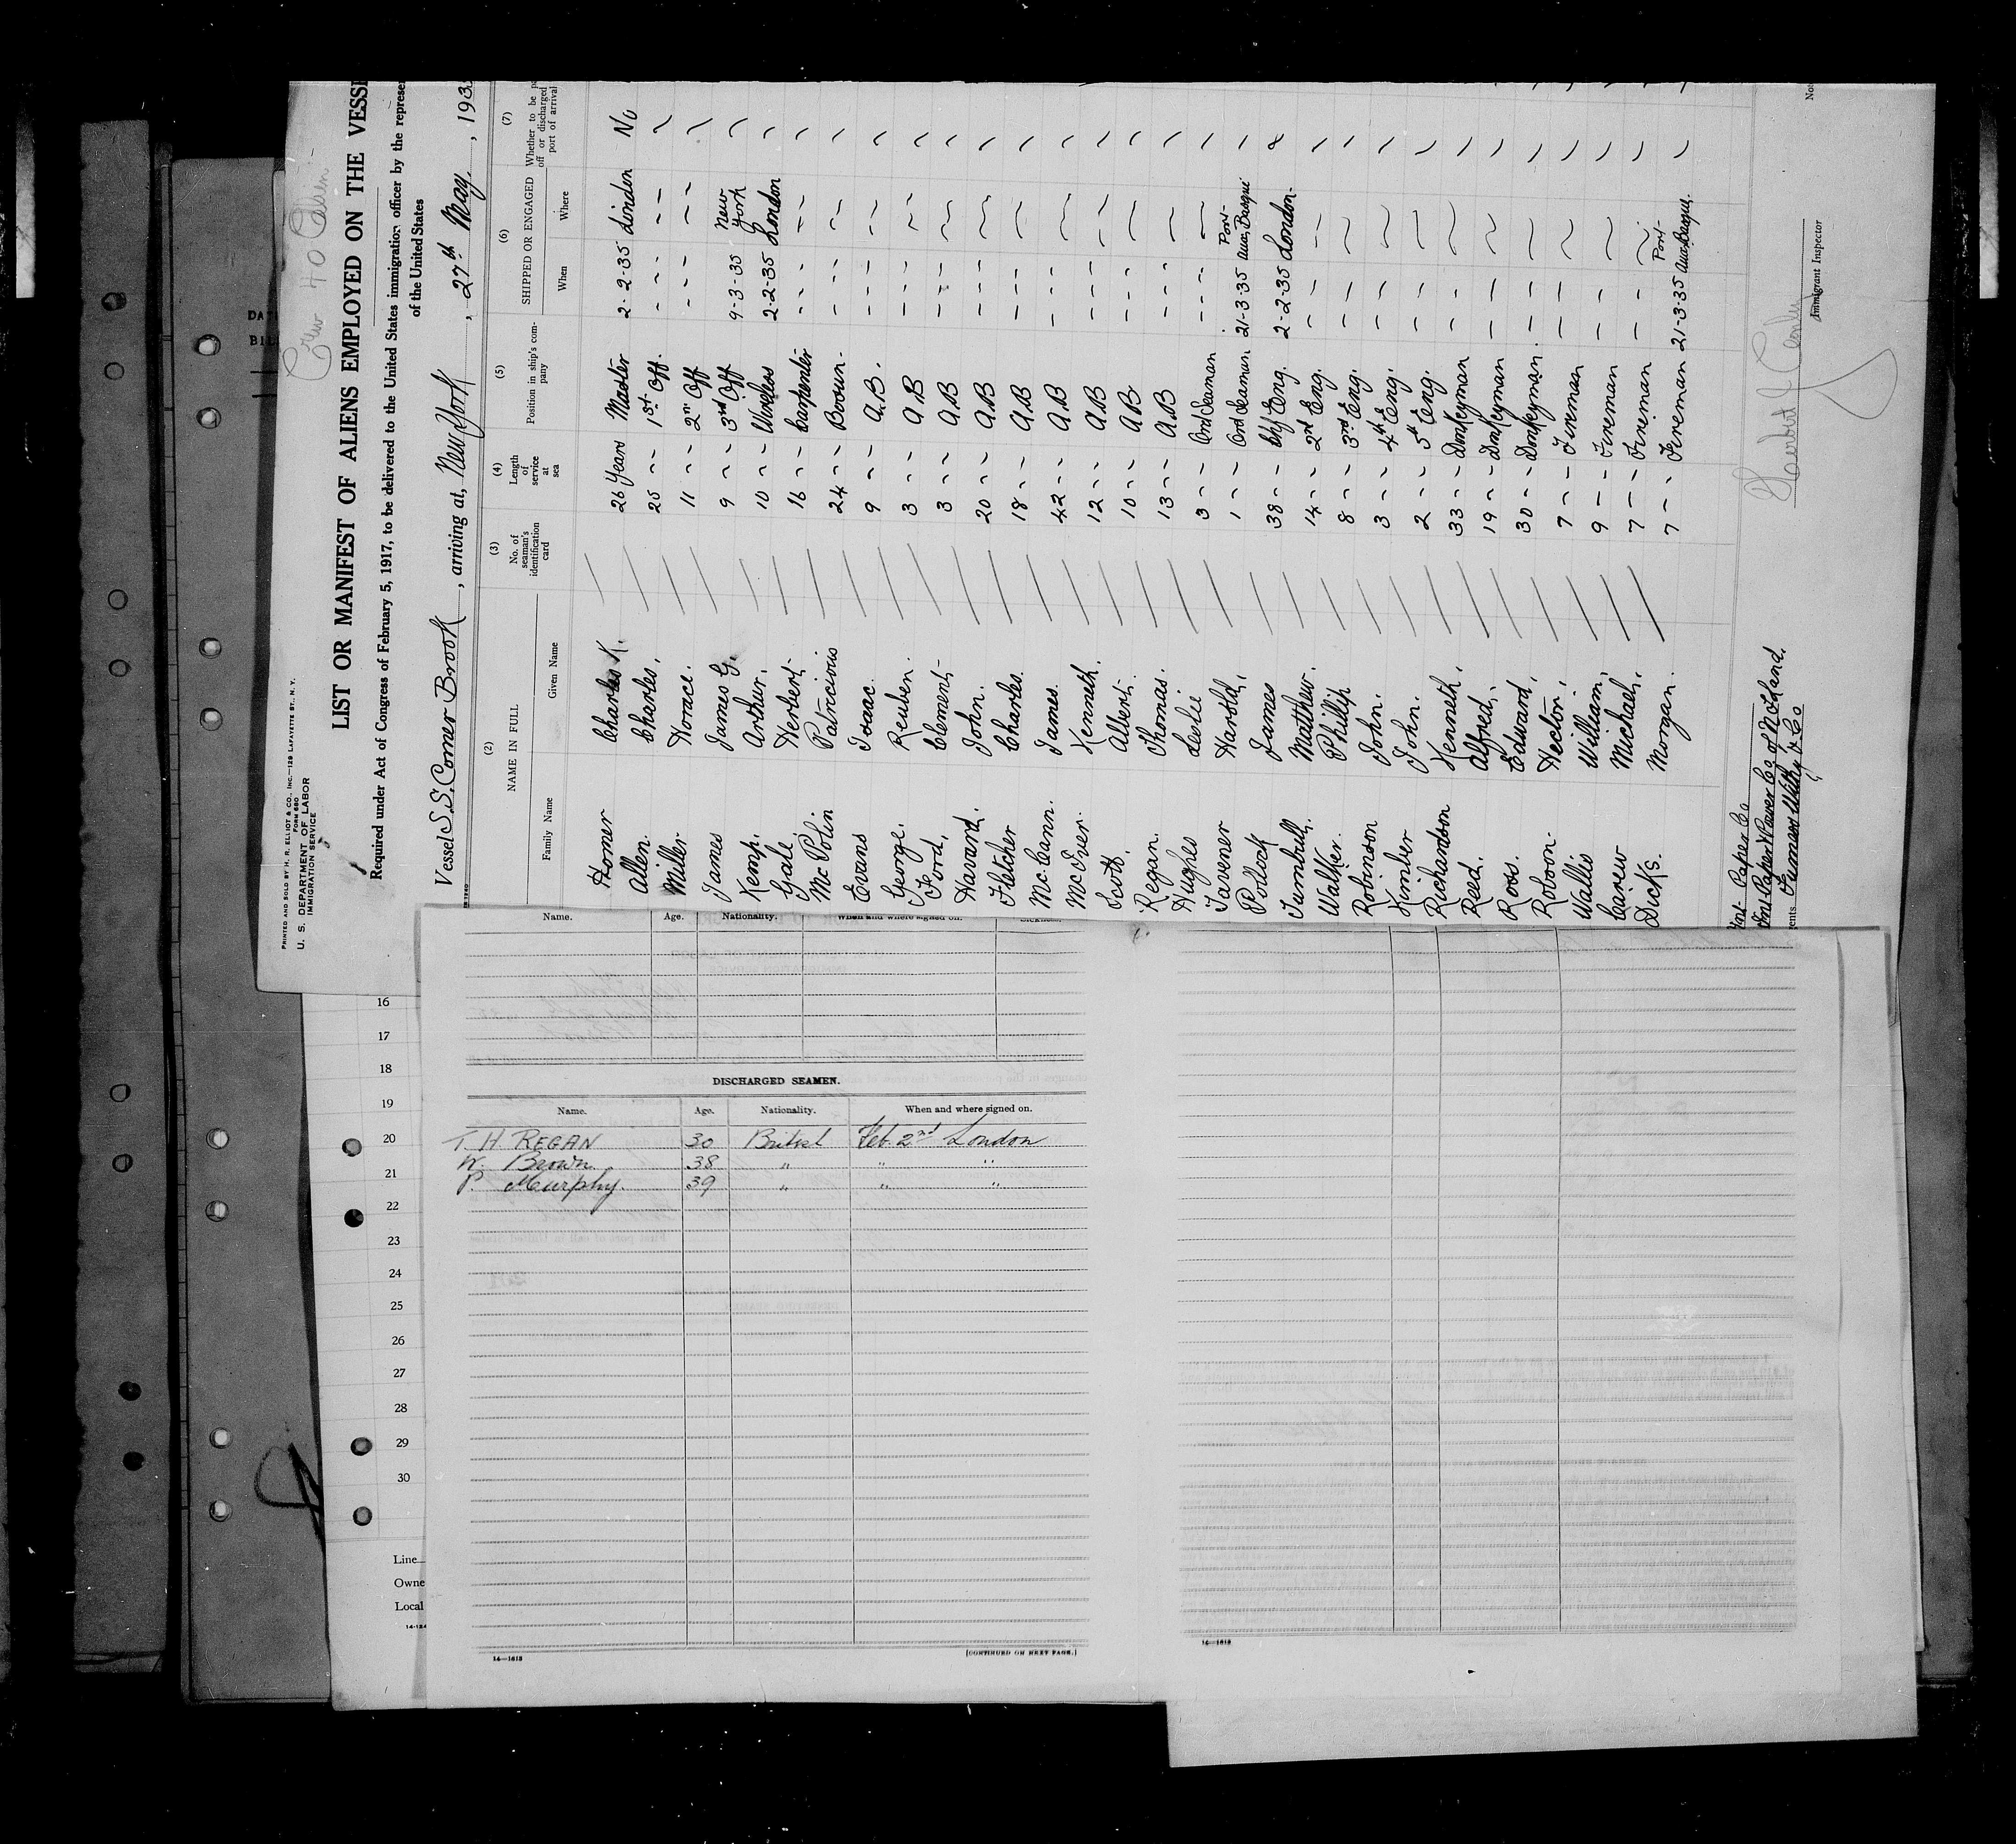 Crew 40
PRINTED AND SOLD BY H. R. ELLIOT & CO., INC.—129 LAFAYETTE ST., N.Y.
FORM 680
U. S. DEPARTMENT OF LABOR
IMMIGRATION SERVICE
LIST OR MANIFEST OF ALIENS EMPLOYED ON THE VESSE
Required under Act of Congress of February 5, 1917, to be delivered to the United States immigration officer by the represe
of the United States
Vessel S.S. Corner Brook, arriving at, New York, 27th May, 193
(2) (3) (4) (5) (6) (7)
NAME IN FULL No. of seaman's identification card Length of service at sea Position in ship's company SHIPPED OR ENGAGED Whether to be p off or discharged port of arrival
Family Name Given Name When Where
Homer Charles K. 26 Years Master 2-2-35 London No
Allen. Charles. 25 ~ ~ 1st Off. - - - - -
Miller. Horace. 11 ~ ~ 2nd Off - - - - -
James James G. 9 ~ ~ 3rd Off 9-3-35 New York
Kemp. Arthur. 10 ~ ~ Wireless 2-2-35 London
Gale. Herbert 16 ~ ~ Carpenter - - - - -
Mc Polin Patricious 24 ~ ~ Bosun. - - - - -
Evans Isaac. 9 ~ ~ A.B. - - - - -
George. Reuben. 3 ~ ~ A.B - - - - -
Ford. Clement 3 ~ ~ A.B - - - ~
Havard. John. 20 ~ ~ A.B - - - ~
Fletcher Charles. 18 ~ ~ A.B - - - ~
Mc.Cann. James. 42 ~ ~ A.B - - ~
McEver. Kenneth. 12 ~ ~ A.B - - - - -
Scott. Albert. 10 ~ ~ A.B - - - ~
Regan. Thomas. 13 ~ ~ A.B - - - ~
Hughes Leslie 3 ~ ~ Ord Seaman - - - ~
Tavener Harold. 1 ~ ~ Ord Seaman 21-3-35 Port-Aux-Basque
Pollock James 38 ~ ~ Chf Eng. 2-2-35 London.
Turnbull. Matthew. 14 ~ ~ 2nd Eng. - - - -
Walker. Phillip 8 ~ ~ 3rd Eng. - - ~
Robinson John. 3 ~ ~ 4th Eng. - - ~
Kimber John. 2 ~ ~ 5th Eng. - - ~
Richardson Kenneth. 33 ~ ~ Donkeyman - - ~
Reed. Alfred. 19 ~ ~ Donkeyman - - ~
Ross. Edward. 30 ~ ~ Donkeyman. - - ~
Robson. Hector. 7 - ~ Fireman - - ~
Wallis William. 9 - ~ Fireman - - ~
Carew Michael. 7 - ~ Fireman - - ~
Dicks. Morgan. 7 - ~ Fireman 21-3-35 Port-Aux-Basque.
Int- Paper Co
Int Paper & Power Co of N.F.Land.
ents Furness Withy & Co
Immigrant Inspector
No
DA
BIL
Name. Age. Nationality. When and where signed on.
DISCHARGED SEAMEN.
Name. Age. Nationality. When and where signed on.
T. H REGAN 30 British Feb. 2nd London
W. Brown. 38 " " "
P. Murphy. 39 " " "
14—1613
[CONTINUED ON NEXT PAGE.]
14—1613
16
17
18
19
20
21
22
23
24
25
26
27
28
29
30
Line
Owne
Local